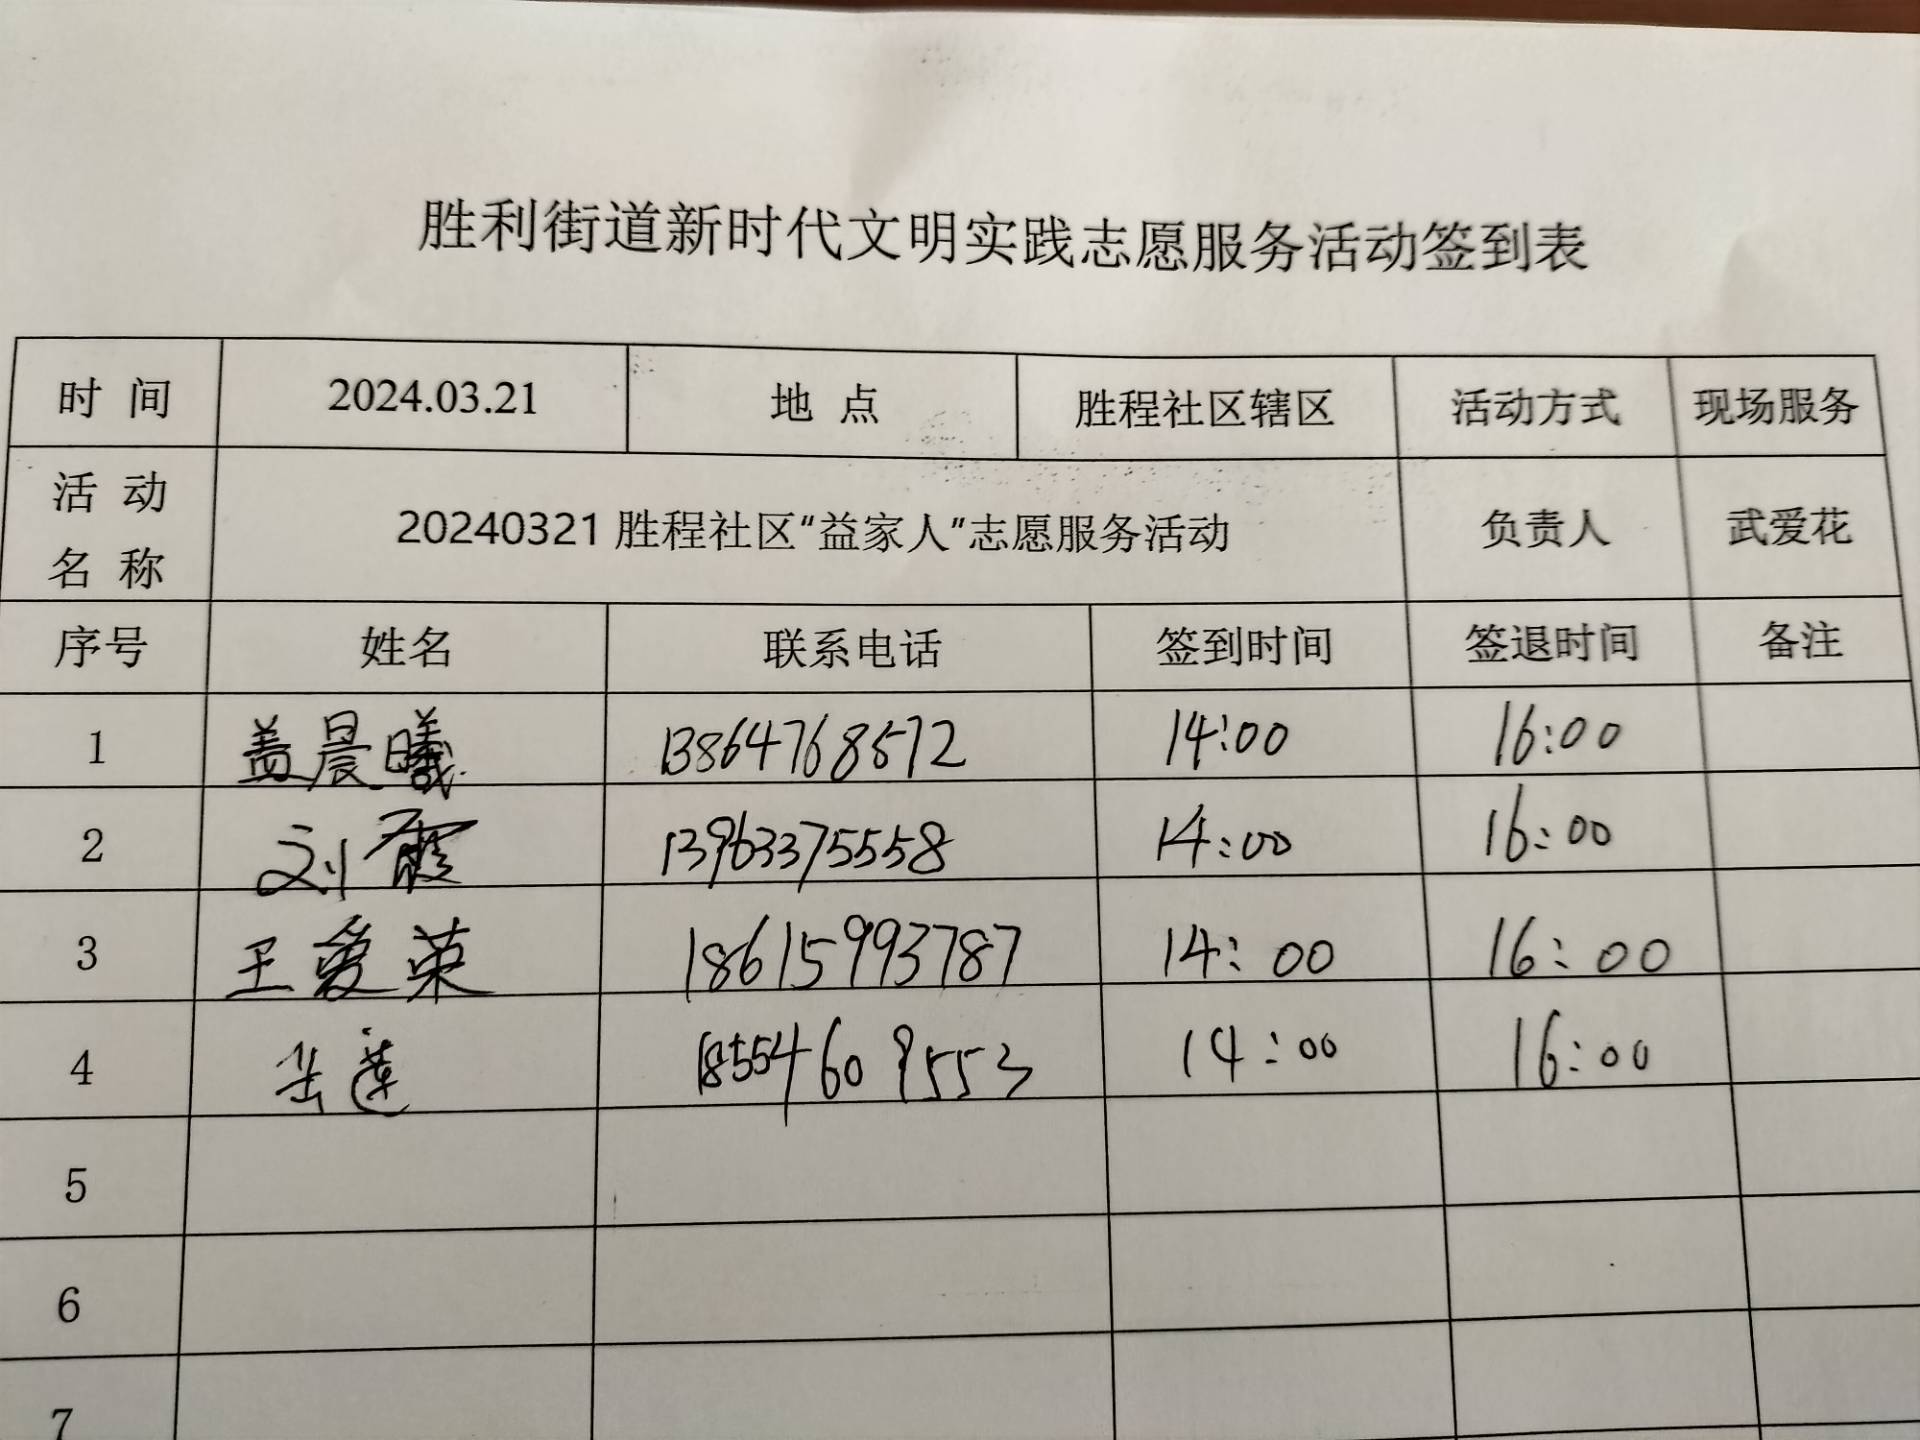 胜利街道新时代文明实践志愿服务活动签到表
时 间 2024.03.21 地 点 胜程社区辖区 活动方式 现场服务
活 动
名 称 20240321 胜程社区“益家人”志愿服务活动 负责人 武爱花
序号 姓名 联系电话 签到时间 签退时间 备注
1 盖晨曦 13864768572 14:00 16:00
2 刘霞 13963375558 14:00 16:00
3 王爱荣 18615993787 14:00 16:00
4 莲 18554609553 14:00 16:00
5
6
7